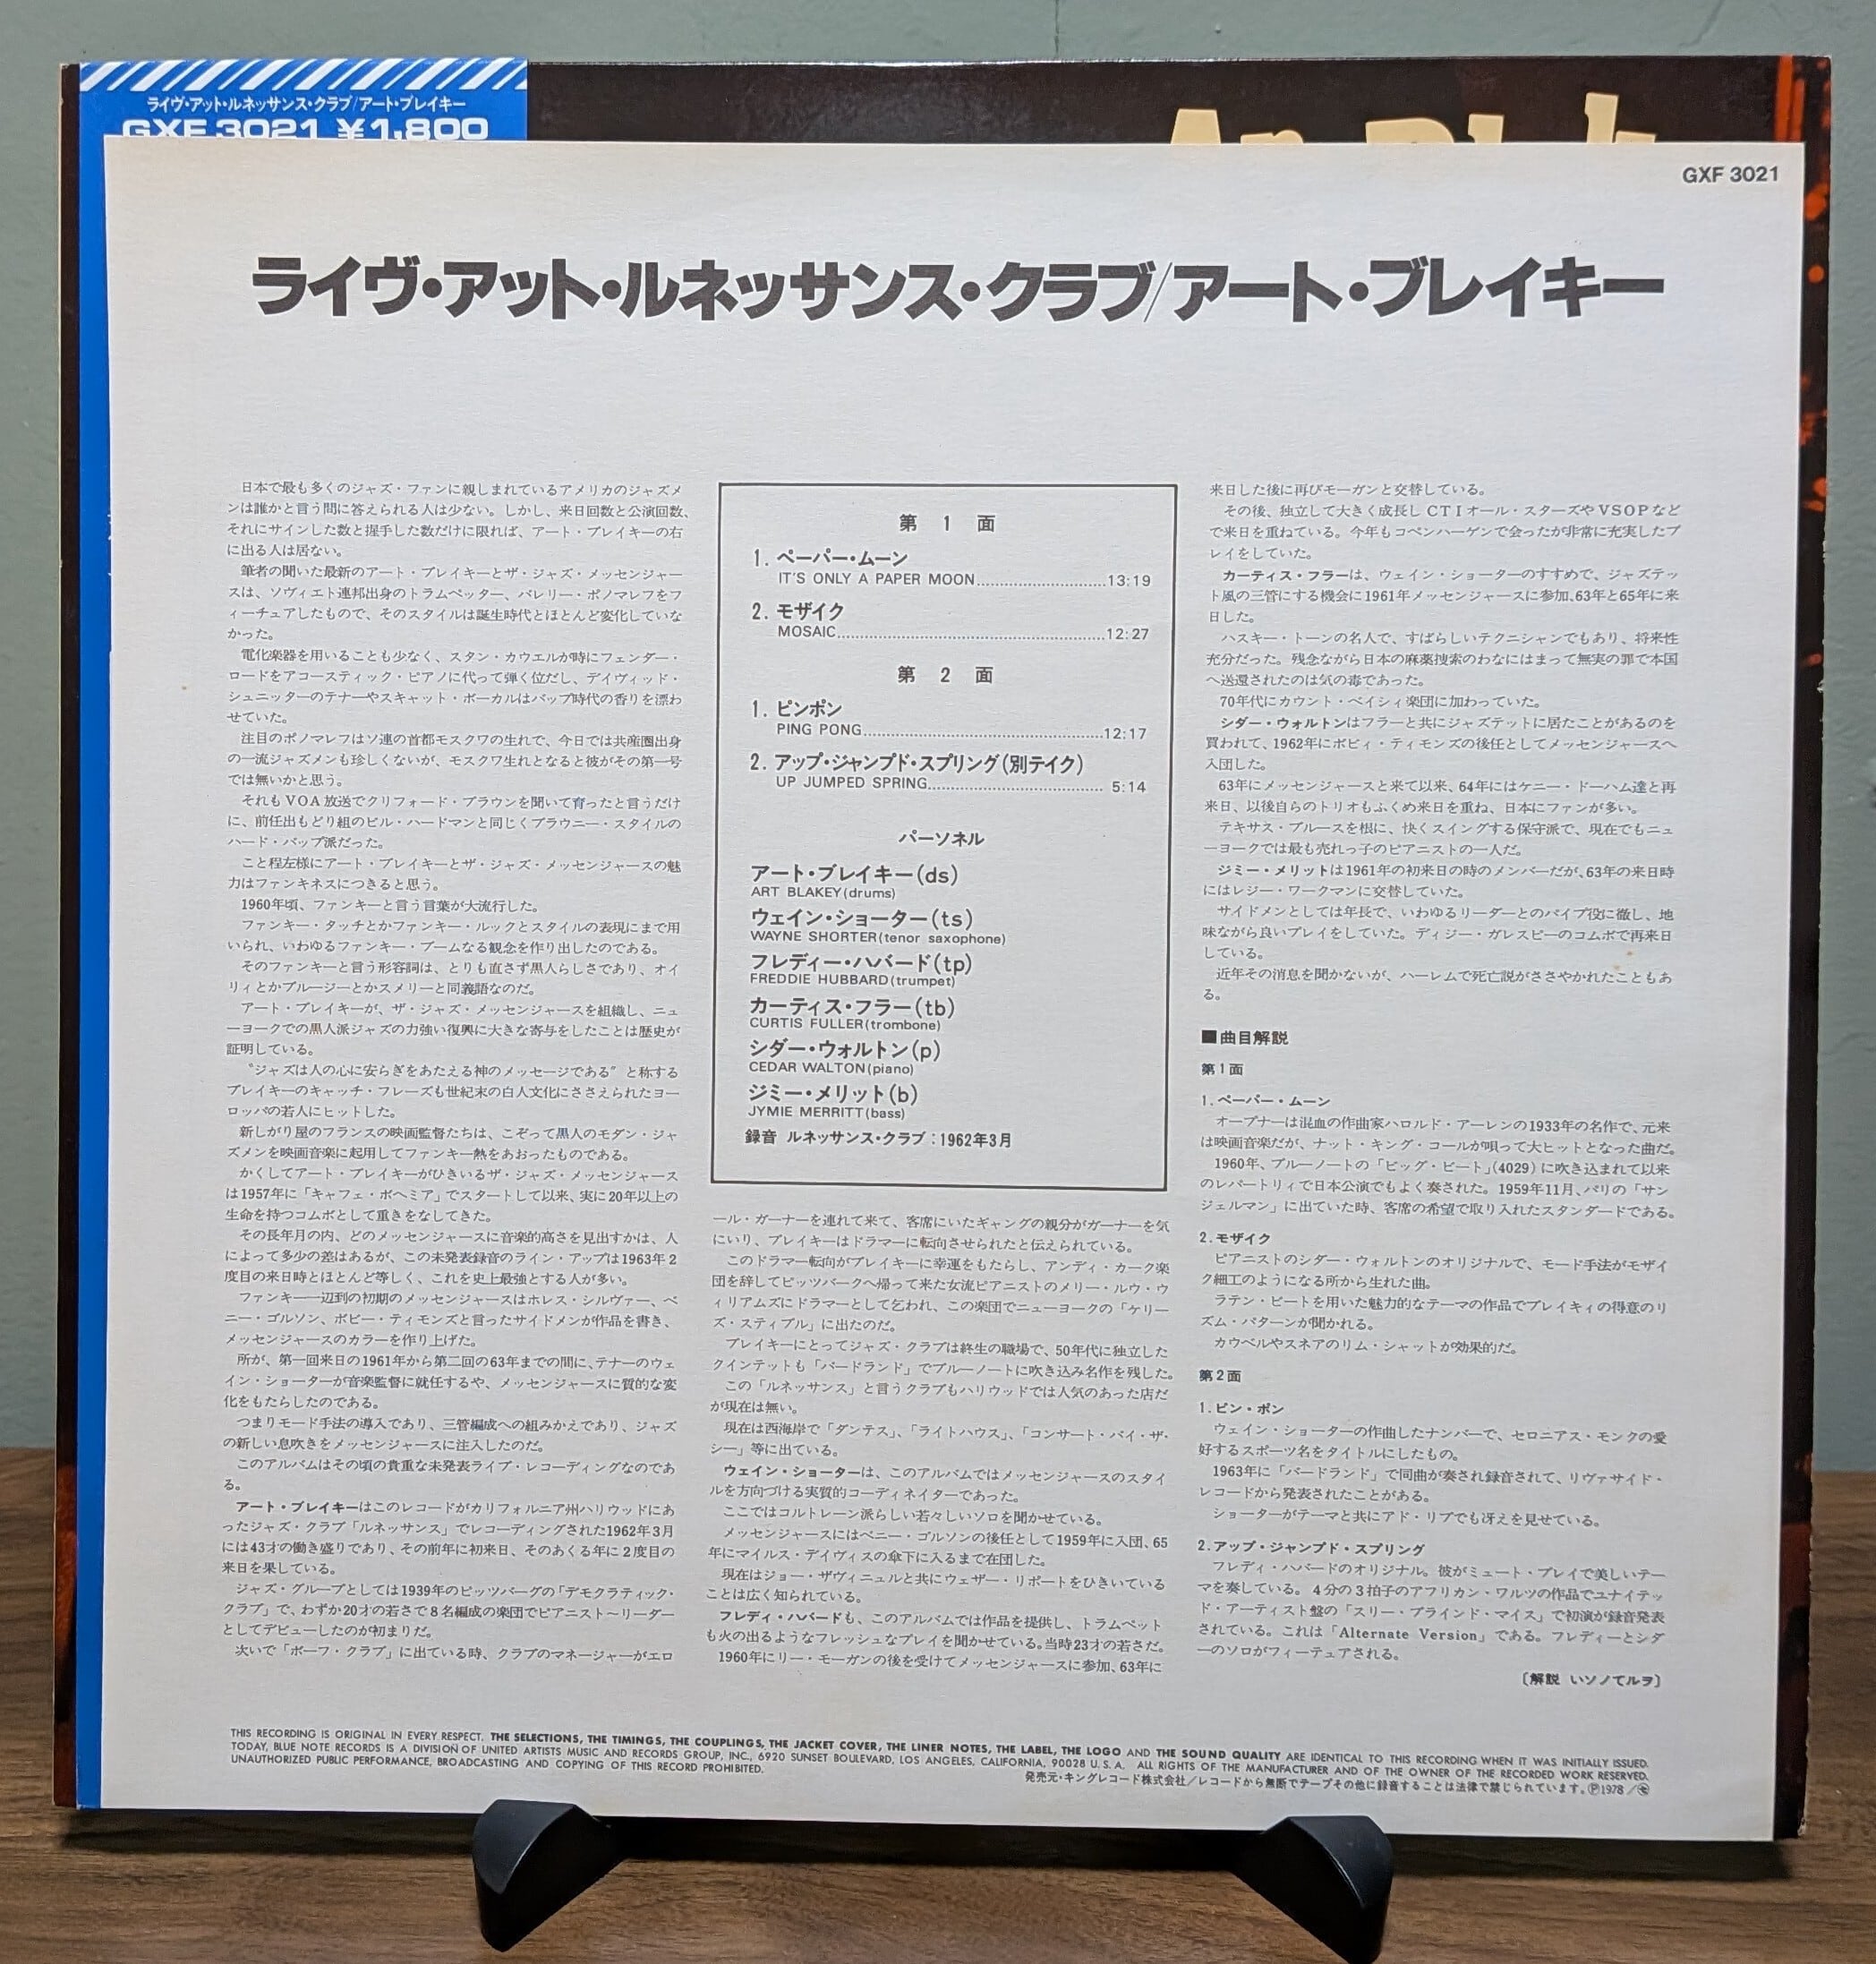 ライヴ・アット・ルネッサンス・クラブ/アート・ブレイキー
GXF 3021 ¥1,800
GXF 3021
ライヴ・アット・ルネッサンス・クラブ/アート・ブレイキー
日本で最も多くのジャズ・ファンに親しまれているアメリカのジャズメ
ンは誰かと言う問に答えられる人は少ない。しかし、来日回数と公演回数、
それにサインした数と握手した数だけに限れば、アート・ブレイキーの右
に出る人は居ない。
筆者の聞いた最新のアート・ブレイキーとザ・ジャズ・メッセンジャー
スは、ソヴィエト連邦出身のトラムペッター、バレリー・ポノマレフをフ
ィーチュアしたもので、そのスタイルは誕生時代とほとんど変化していな
かった。
電化楽器を用いることも少なく、スタン・カウエルが時にフェンダー・
ロードをアコースティック・ピアノに代って弾く位だし、デイヴィッド・
シュニッターのテナーやスキャット・ボーカルはバップ時代の香りを漂わ
せていた。
注目のポノマレフはソ連の首都モスクワの生れで、今日では共産圏出身
の一流ジャズメンも珍しくないが、モスクワ生れとなると彼がその第一号
では無いかと思う。
それもVOA放送でクリフォード・ブラウンを聞いて育ったと言うだけ
に、前任出もどり組のビル・ハードマンと同じくブラウニー・スタイルの
ハード・バップ派だった。
こと程左様にアート・ブレイキーとザ・ジャズ・メッセンジャースの魅
力はファンキネスにつきると思う。
1960年頃、ファンキーと言う言葉が大流行した。
ファンキー・タッチとかファンキー・ルックとスタイルの表現にまで用
いられ、いわゆるファンキー・ブームなる観念を作り出したのである。
そのファンキーと言う形容詞は、とりも直さず黒人らしさであり、オイ
リィとかブルージーとかスメリーと同義語なのだ。
アート・ブレイキーが、ザ・ジャズ・メッセンジャースを組織し、ニュ
ーヨークでの黒人派ジャズの力強い復興に大きな寄与をしたことは歴史が
証明している。
“ジャズは人の心に安らぎをあたえる神のメッセージである”と称する
ブレイキーのキャッチ・フレーズも世紀末の白人文化にささえられたヨー
ロッパの若人にヒットした。
新しがり屋のフランスの映画監督たちは、こぞって黒人のモダン・ジャ
ズメンを映画音楽に起用してファンキー熱をあおったものである。
かくしてアート・ブレイキーがひきいるザ・ジャズ・メッセンジャース
は1957年に「キャフェ・ボヘミア」でスタートして以来、実に20年以上の
生命を持つコムボとして重きをなしてきた。
その長年月の内、どのメッセンジャースに音楽的高さを見出すかは、人
によって多少の差はあるが、この未発表録音のライン・アップは1963年2
度目の来日時とほとんど等しく、これを史上最強とする人が多い。
ファンキー一辺到の初期のメッセンジャースはホレス・シルヴァー、ベ
ニー・ゴルソン、ボビー・ティモンズと言ったサイドメンが作品を書き、
メッセンジャースのカラーを作り上げた。
所が、第一回来日の1961年から第二回の63年までの間に、テナーのウェ
イン・ショーターが音楽監督に就任するや、メッセンジャースに質的な変
化をもたらしたのである。
つまりモード手法の導入であり、三管編成への組みかえであり、ジャズ
の新しい息吹きをメッセンジャースに注入したのだ。
このアルバムはその頃の貴重な未発表ライブ・レコーディングなのであ
る。
アート・ブレイキーはこのレコードがカリフォルニア州ハリウッドにあ
ったジャズ・クラブ「ルネッサンス」でレコーディングされた1962年3月
には43才の働き盛りであり、その前年に初来日、そのあくる年に2度目の
来日を果している。
ジャズ・グループとしては1939年のピッツバーグの「デモクラティック・
クラブ」で、わずか20才の若さで8名編成の楽団でピアニスト〜リーダー
としてデビューしたのが初まりだ。
次いで「ボーフ・クラブ」に出ている時、クラブのマネージャーがエロ
第 1 面
1. ペーパー・ムーン
IT'S ONLY A PAPER MOON..........13:19
2. モザイク
MOSAIC..........12:27
第 2 面
1. ピンポン
PING PONG..........12:17
2. アップ・ジャンプド・スプリング(別テイク)
UP JUMPED SPRING.......... 5:14
パーソネル
アート・ブレイキー(ds)
ART BLAKEY(drums)
ウェイン・ショーター(ts)
WAYNE SHORTER(tenor saxophone)
フレディー・ハバード(tp)
FREDDIE HUBBARD(trumpet)
カーティス・フラー(tb)
CURTIS FULLER(trombone)
シダー・ウォルトン(p)
CEDAR WALTON(piano)
ジミー・メリット(b)
JYMIE MERRITT(bass)
録音 ルネッサンス・クラブ:1962年3月
ール・ガーナーを連れて来て、客席にいたギャングの親分がガーナーを気
にいり、ブレイキーはドラマーに転向させられたと伝えられている。
このドラマー転向がブレイキーに幸運をもたらし、アンディ・カーク楽
団を辞してピッツバークへ帰って来た女流ピアニストのメリー・ルウ・ウ
ィリアムズにドラマーとして乞われ、この楽団でニューヨークの「ケリー
ズ・スティブル」に出たのだ。
ブレイキーにとってジャズ・クラブは終生の職場で、50年代に独立した
クインテットも「バードランド」でブルーノートに吹き込み名作を残した。
この「ルネッサンス」と言うクラブもハリウッドでは人気のあった店だ
が現在は無い。
現在は西海岸で「ダンテス」、「ライトハウス」、「コンサート・バイ・ザ・
シー」等に出ている。
ウェイン・ショーターは、このアルバムではメッセンジャースのスタイ
ルを方向づける実質的コーディネイターであった。
ここではコルトレーン派らしい若々しいソロを聞かせている。
メッセンジャースにはベニー・ゴルソンの後任として1959年に入団、65
年にマイルス・デイヴィスの傘下に入るまで在団した。
現在はジョー・ザヴィニュルと共にウェザー・リポートをひきいている
ことは広く知られている。
フレディ・ハバードも、このアルバムでは作品を提供し、トラムペット
も火の出るようなフレッシュなプレイを聞かせている。当時23才の若さだ。
1960年にリー・モーガンの後を受けてメッセンジャースに参加、63年に
来日した後に再びモーガンと交替している。
その後、独立して大きく成長しCTIオール・スターズやVSOPなど
で来日を重ねている。今年もコペンハーゲンで会ったが非常に充実したプ
レイをしていた。
カーティス・フラーは、ウェイン・ショーターのすすめで、ジャズテッ
ト風の三管にする機会に1961年メッセンジャースに参加、63年と65年に来
日した。
ハスキー・トーンの名人で、すばらしいテクニシャンでもあり、将来性
充分だった。残念ながら日本の麻薬捜索のわなにはまって無実の罪で本国
へ送還されたのは気の毒であった。
70年代にカウント・ベイシィ楽団に加わっていた。
シダー・ウォルトンはフラーと共にジャズテットに居たことがあるのを
買われて、1962年にボビィ・ティモンズの後任としてメッセンジャースへ
入団した。
63年にメッセンジャースと来て以来、64年にはケニー・ドーハム達と再
来日、以後自らのトリオもふくめ来日を重ね、日本にファンが多い。
テキサス・ブルースを根に、快くスイングする保守派で、現在でもニュ
ーヨークでは最も売れっ子のピアニストの一人だ。
ジミー・メリットは1961年の初来日の時のメンバーだが、63年の来日時
にはレジー・ワークマンに交替していた。
サイドメンとしては年長で、いわゆるリーダーとのパイプ役に徹し、地
味ながら良いプレイをしていた。ディジー・ガレスピーのコムボで再来日
している。
近年その消息を聞かないが、ハーレムで死亡説がささやかれたこともあ
る。
■曲目解説
第1面
1. ペーパー・ムーン
オープナーは混血の作曲家ハロルド・アーレンの1933年の名作で、元来
は映画音楽だが、ナット・キング・コールが唄って大ヒットとなった曲だ。
1960年、ブルーノートの「ビッグ・ビート」(4029)に吹き込まれて以来
のレパートリィで日本公演でもよく奏された。1959年11月、パリの「サン
ジェルマン」に出ていた時、客席の希望で取り入れたスタンダードである。
2. モザイク
ピアニストのシダー・ウォルトンのオリジナルで、モード手法がモザイ
ク細工のようになる所から生れた曲。
ラテン・ビートを用いた魅力的なテーマの作品でブレイキィの得意のリ
ズム・パターンが聞かれる。
カウベルやスネアのリム・シャットが効果的だ。
第2面
1. ピン・ポン
ウェイン・ショーターの作曲したナンバーで、セロニアス・モンクの愛
好するスポーツ名をタイトルにしたもの。
1963年に「バードランド」で同曲が奏され録音されて、リヴァサイド・
レコードから発表されたことがある。
ショーターがテーマと共にアド・リブでも冴えを見せている。
2. アップ・ジャンプド・スプリング
フレディ・ハバードのオリジナル。彼がミュート・プレイで美しいテー
マを奏している。4分の3拍子のアフリカン・ワルツの作品でユナイテッ
ド・アーティスト盤の「スリー・ブラインド・マイス」で初演が録音発表
されている。これは「Alternate Version」である。フレディーとシダ
ーのソロがフィーテュアされる。
〔解説 いソノてルヲ〕
THIS RECORDING IS ORIGINAL IN EVERY RESPECT. THE SELECTIONS, THE TIMINGS, THE COUPLINGS, THE JACKET COVER, THE LINER NOTES, THE LABEL, THE LOGO AND THE SOUND QUALITY ARE IDENTICAL TO THIS RECORDING WHEN IT WAS INITIALLY ISSUED.
TODAY, BLUE NOTE RECORDS IS A DIVISION OF UNITED ARTISTS MUSIC AND RECORDS GROUP, INC., 6920 SUNSET BOULEVARD, LOS ANGELES, CALIFORNIA, 90028 U.S.A. ALL RIGHTS OF THE MANUFACTURER AND OF THE OWNER OF THE RECORDED WORK RESERVED.
UNAUTHORIZED PUBLIC PERFORMANCE, BROADCASTING AND COPYING OF THIS RECORD PROHIBITED.
発売元・キングレコード株式会社/レコードから無断でテープその他に録音することは法律で禁じられています。Ⓟ1978/